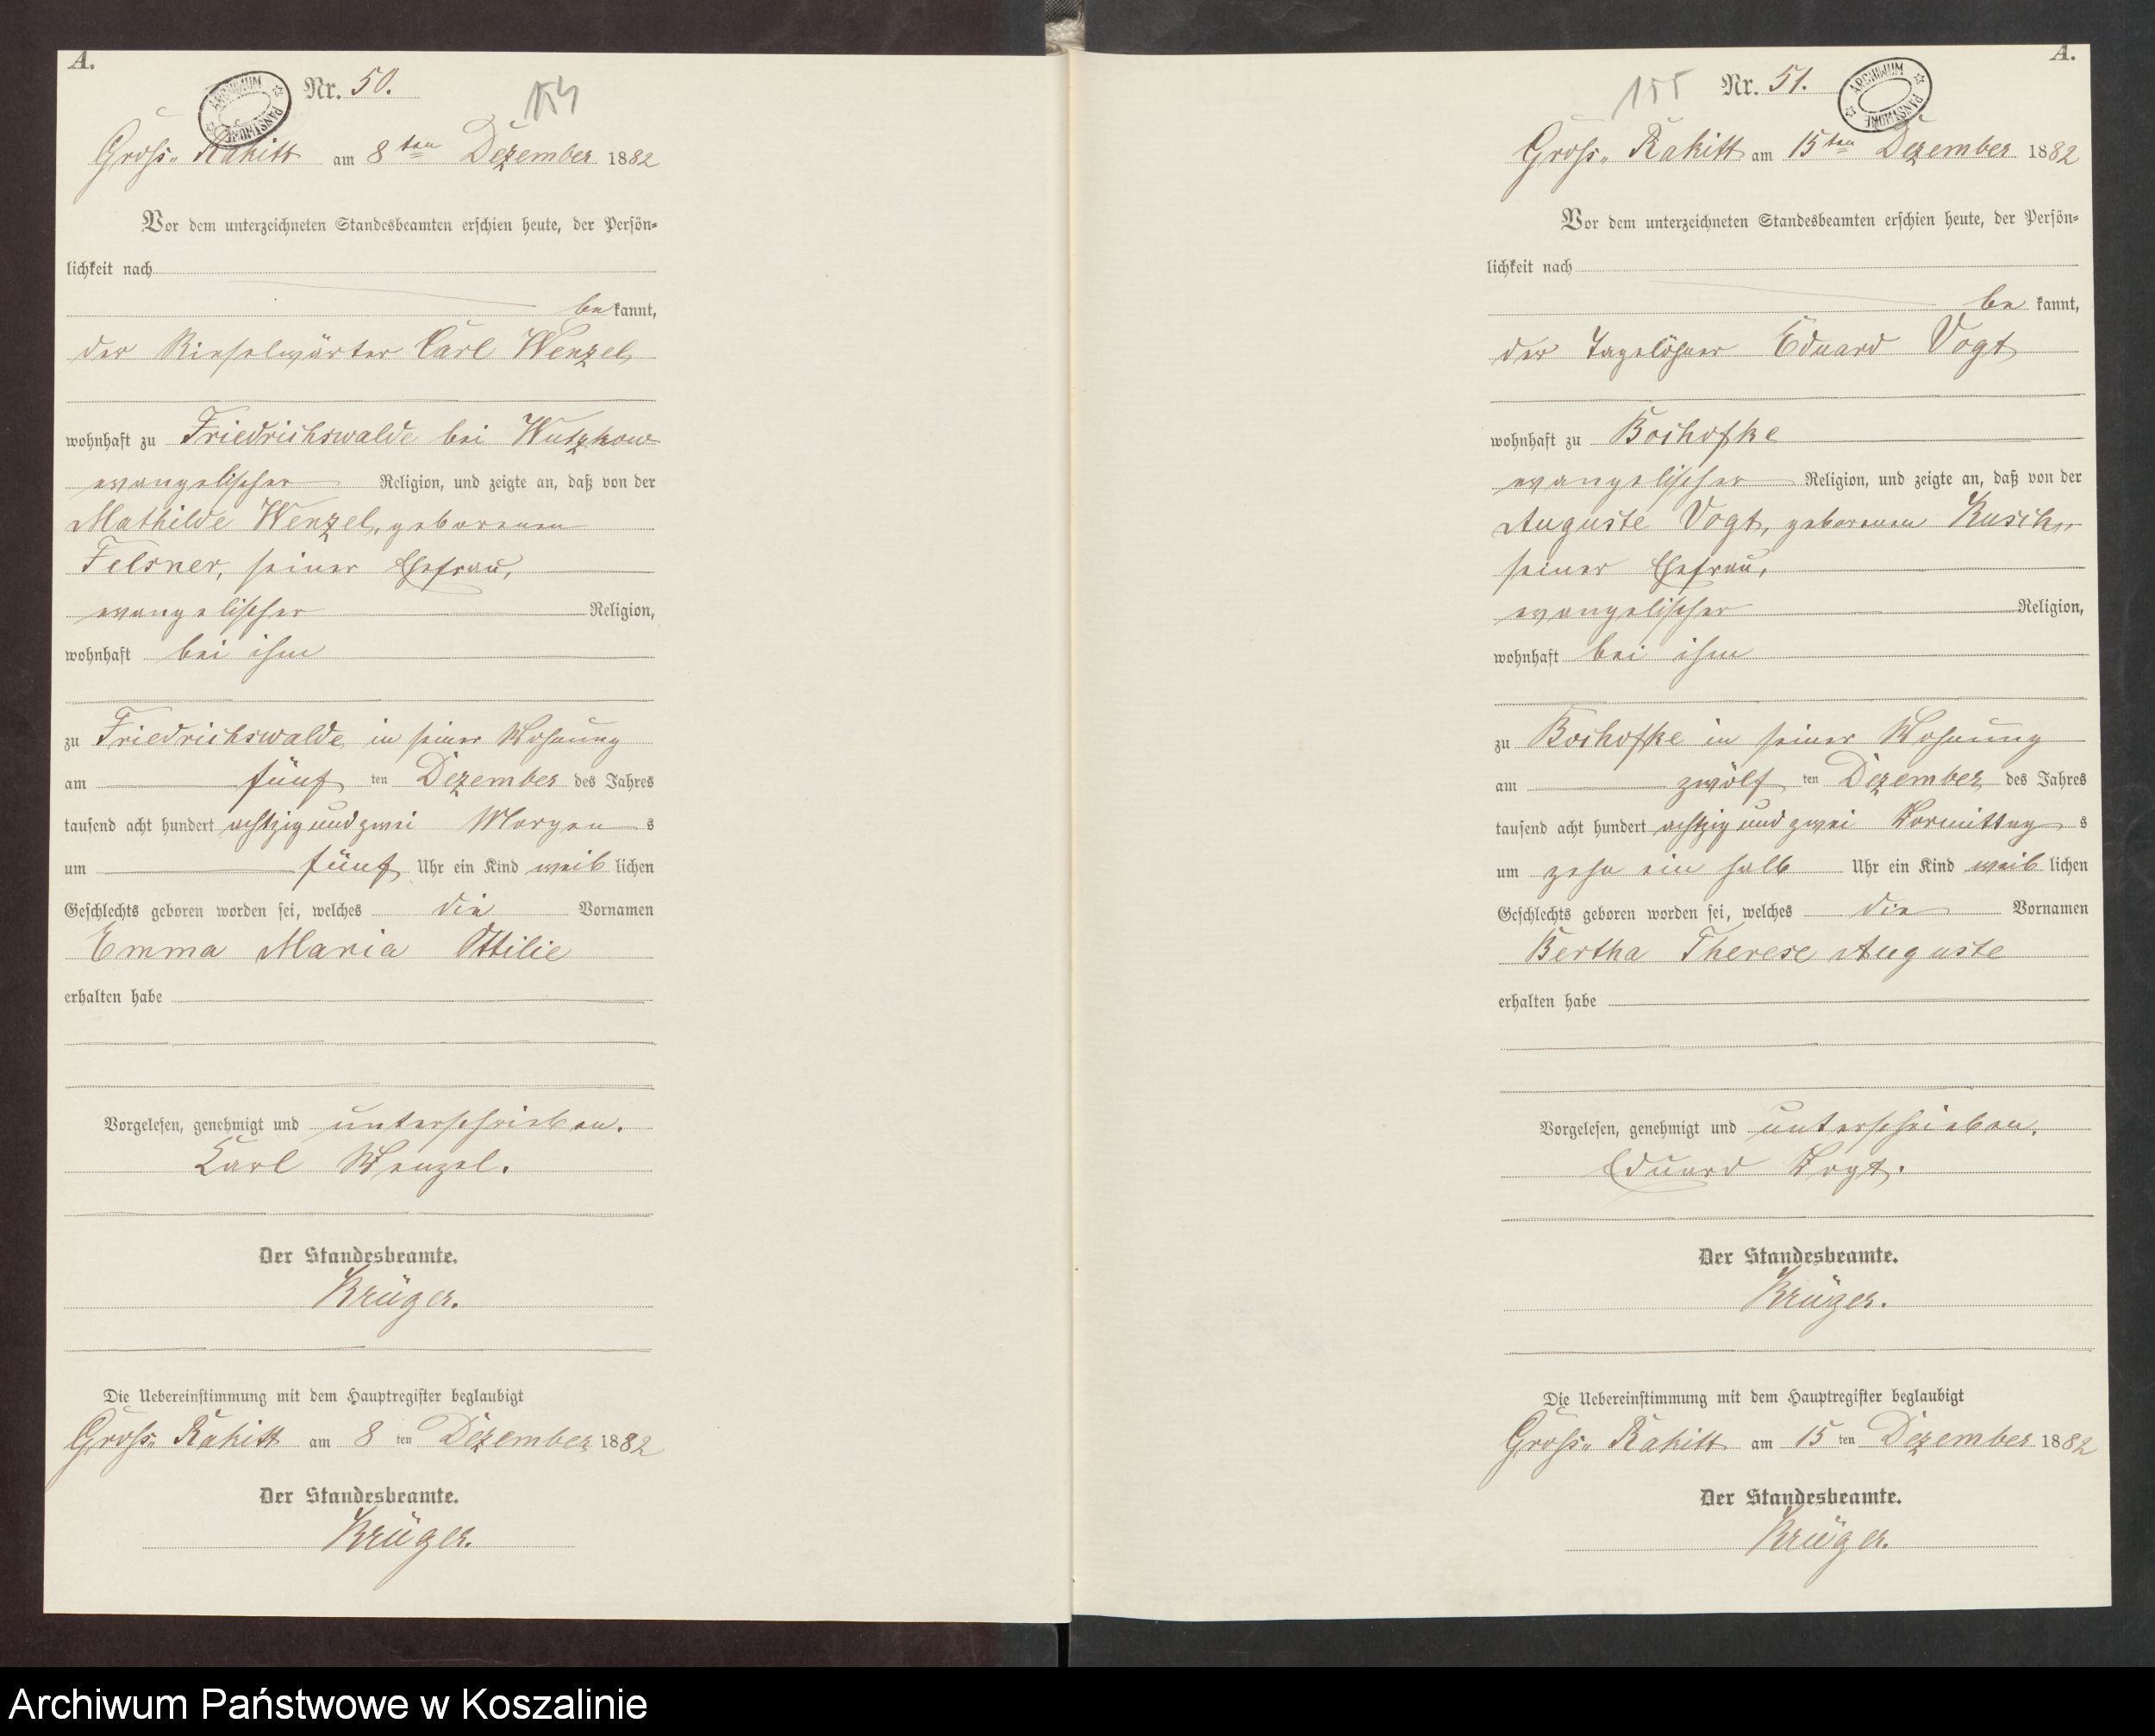 A.
Nr. 50.
154
ARCHIWUM PAŃSTWOWE
Groß- Rakitt am 8 ten Dezember 1882
Vor dem unterzeichneten Standesbeamten erschien heute, der Persön-
lichkeit nach
bekannt,
der Rieselwärter Carl Wenzel,
wohnhaft zu Friedrichswalde bei Wutzkow
evangelischer Religion, und zeigte an, daß von der
Mathilde Wenzel, geborenen
Felsner, seiner Ehefrau,
evangelischer Religion,
wohnhaft bei ihm
zu Friedrichswalde in seiner Wohnung
am fünf ten Dezember des Jahres
tausend acht hundert achtzig und zwei Morgens
um fünf Uhr ein Kind weiblichen
Geschlechts geboren worden sei, welches die Vornamen
Emma Maria Ottilie
erhalten habe
Vorgelesen, genehmigt und unterschrieben.
Carl Wenzel.
Der Standesbeamte.
Krüger.
Die Uebereinstimmung mit dem Hauptregister beglaubigt
Groß- Rakitt am 8 ten Dezember 1882
Der Standesbeamte.
Krüger.
A.
155
Nr. 51.
ARCHIWUM PAŃSTWOWE
Groß- Rakitt am 15 ten Dezember 1882
Vor dem unterzeichneten Standesbeamten erschien heute, der Persön-
lichkeit nach
bekannt,
der Tagelöhner Eduard Vogt
wohnhaft zu Bochofke
evangelischer Religion, und zeigte an, daß von der
Auguste Vogt, geborenen Kusch,
seiner Ehefrau,
evangelischer Religion,
wohnhaft bei ihm
zu Bochofke in seiner Wohnung
am zwölf ten Dezember des Jahres
tausend acht hundert achtzig und zwei Vormittags
um zehn ein halb Uhr ein Kind weiblichen
Geschlechts geboren worden sei, welches die Vornamen
Bertha Therese Auguste
erhalten habe
Vorgelesen, genehmigt und unterschrieben.
Eduard Vogt.
Der Standesbeamte.
Krüger.
Die Uebereinstimmung mit dem Hauptregister beglaubigt
Groß- Rakitt am 15 ten Dezember 1882
Der Standesbeamte.
Krüger.
Archiwum Państwowe w Koszalinie